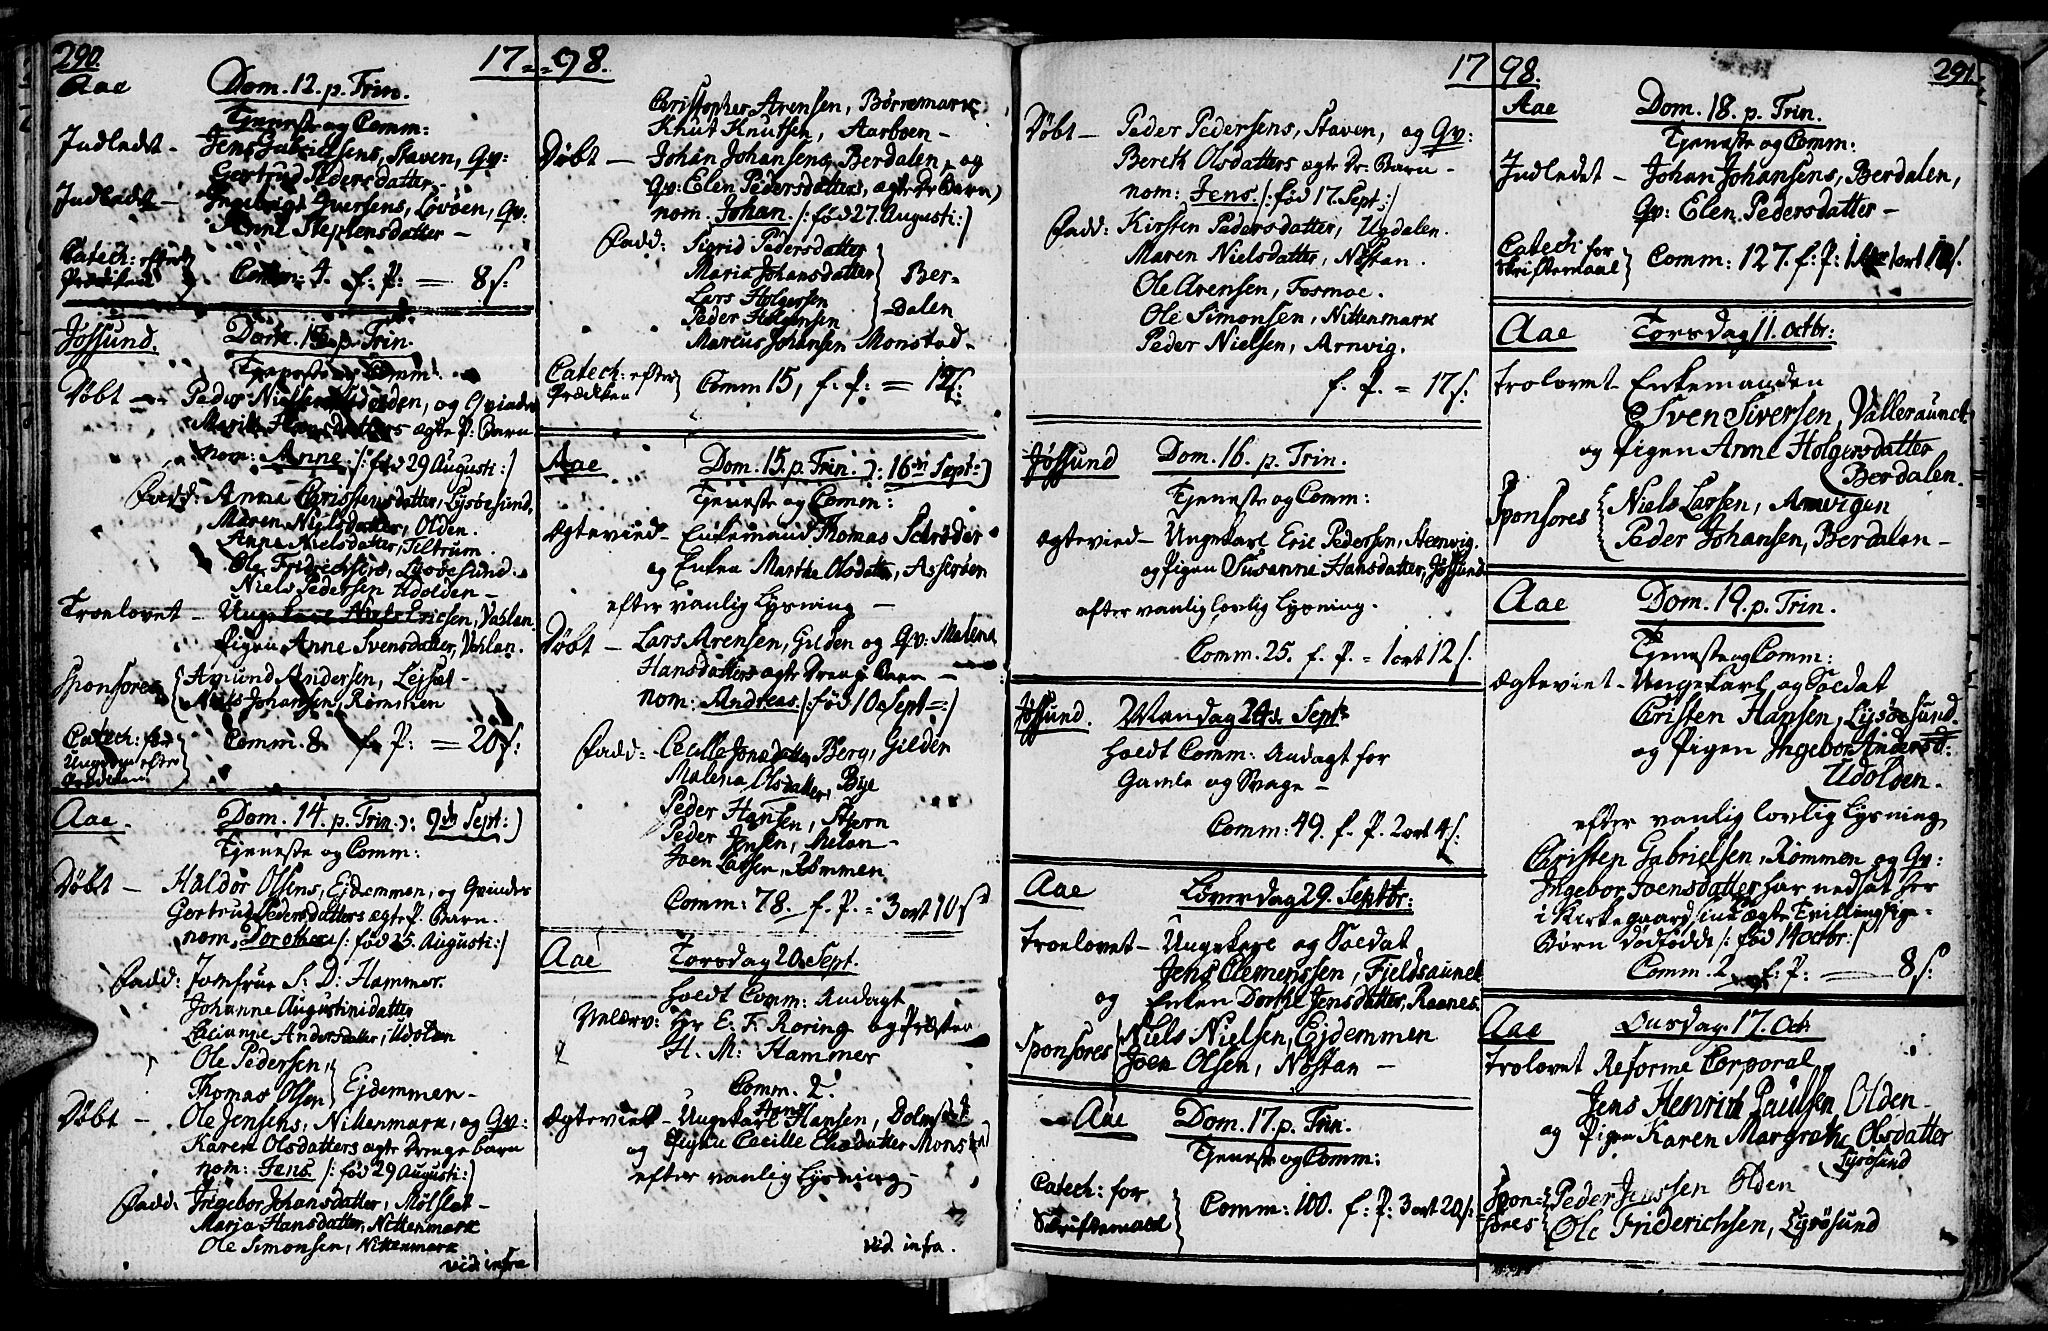 290.
17 = = 98.
Aae Dom. 12. p. Trin.
Tjeneste og Comm:
Indledet - Jens Gabrielsens, Staven, Qv:
Gertrud Pedersdatter -
Indledet - Ingebrigt Iversens, Lövöen, Qv:
Anne Stephensdatter -
Catech: efter Prædiken } Comm: 4. f. P: = 8 s:
Jössund. Dom. 13. p. Trin.
Tjeneste og Comm:
Döbt - Peder Nielsens Udolden, og Qvindes
Marith Hansdatters ægte P: Barn
nom: Anne /: föd 29 Augusti :/
Fadd: Anne Christensdatter, Lysöesund,
Maren Nielsdatter, Olden.
Anne Nielsdatter, Teltrum.
Ole Fridrichsens, Lysöesund.
Niels Pedersen Udolden -
Troelovet - Ungekarl Niels Ericsen, Vahlan.
Pigen Anne Svensdatter, Vahlan.
Sponsores { Amund Andersen, Lejsæt -
Niels Johansen, Römmen
Catech: for Ungdom efter Prædiken } Comm. 8. f. P: = 20 s:
Aae. Dom. 14. p. Trin. ɔ: 9de Sept:)
Tjeneste og Comm:
Döbt - Haldor Olsens, Ejdemmen, og Qvindes
Gertrud Pedersdatters ægte P. Barn.
nom. Dorothea /: föd 25. Augusti :/
Fadd: Jomfrue S: D: Hammer.
Johanne Augustinidatter
Lucianne Andersdatter, Udolden
Ole Pedersen,
Thomas Olsen } Ejdemmen -
Döbt - Ole Jensens, Nittenmark, og Qv:
Karen Olsdatters ægte Drenge Barn
nom: Jens /: föd 29 Augusti :/
Fadd: Ingebor Johansdatter, Mölslæt -
Maria Hansdatter, Nittenmark
Ole Simonsen, Nittenmark
vid: infra
Christopher Arensen, Börremark
Knut Knutsen, Aarboen -
Döbt - Johan Johansens Berdalen, og
Qv: Elen Pedersdatters, ægte Dr: Barn
nom. Johan. /: föd 27. Augusti :/
Fadd: Sigrid Pedersdatter
Maria Johansdatter
Lars Holgersen
Peder Holgersen } Ber-
dalen
Marcus Johansen Monstad -
Catech: efter Prædiken } Comm 15, f. P: = 12 s:
Aae Dom. 15. p. Trin. ɔ: 16de Sept:)
Tjeneste og Comm:
Ægtevied - Enkemand Thomas Schröder
og Enken Marthe Olsdatter, Asseröen
efter vanlig Lysning -
Döbt - Lars Arensen, Gilden og Qv: Malena
Hansdatters ægte Drenge Barn -
nom: Andreas. /: föd 10de Sept :/
Fadd: Cecille Jonsdatter Berg, Gilden
Malena Olsdatter, Bye
Peder Hansen, Stjern
Peder Jensen, Melan -
Joen Larsen, Römmen
Comm: 78. f. P. = 3 ort 10 s:
Aae Torsdag 20de Sept.
holdt Comm: Andagt
Velærv: Hr E. F. Roring og Præsten
H. M: Hammer
Comm. 2.
Ægteviet - Ungekarl Hans Hansen, Dolmsæt
og Pigen Cecille Elisdatter Monstad
efter vanlig Lysning -
vid. infra.
17 98. 291.
Döbt - Peder Pedersens, Staven, og Qv:
Bereth Olsdatters ægte Dr: Barn -
nom: Jens. /: föd 17. Sept :/
Fadd: Kirsten Pedersdatter, Ugdalen.
Maren Nielsdatter, Nöstan.
Ole Arensen, Fosmoe.
Ole Simonsen, Nittenmark
Peder Nielsen, Arnvig.
f. P. = 17 s:
Jössund Dom. 16. p. Trin.
Tjeneste og Comm:
Ægteviet - Ungekarl Eric Pedersen, Steenvig.
og Pigen Susanne Hansdatter, Jössund
efter vanlig lovlig Lysning.
Comm. 25. f. P. = 1 ort 12 s.
Jössund. Mandag 24de Sept:
holdt Comm: Andagt for
Gamle og Svage -
Comm: 49. f. P. 2 ort 4 s:
Aae Löverdag 29. Septbr:
Troelovet - Ungekarl og Soldat
Jens Clemenssen, Fieldsaunet
og Enken Dorthe Jensdatter, Raanes.
Sponsores { Niels Nielsen, Ejdemmen
Joen Olsen, Nöstan -
Aae Dom. 17. p. Trin.
Tjeneste og Comm:
Catech: for Skriftemaal } Comm: 100. f. P: 3 ort 20 s:
Aae Dom. 18. p. Trin.
Tjeneste og Comm:
Indledet - Johan Johansens, Berdalen,
Qv: Elen Pedersdatter -
Catech: for Skriftemaal } Comm: 127. f. P: 1 ort
Aae Torsdag 11. Octbr:
Trolovet - Enkemanden
Sven Siversen, Valleraunet
og Pigen Anne Holgersdatter
Berdalen.
Sponsores { Niels Larsen, Arnvigen
Peder Johansen, Berdalen -
Aae Dom. 19. p. Trin.
Tjeneste og Comm:
Ægteviet - Ungekarl og Soldat
Christen Hansen, Lysöesund.
og Pigen Ingebor Andersd:
Udolden.
efter vanlig lovlig Lysning
Christen Gabrielsen, Römmen og Qv:
Ingebor Joensdatter har nedsat her
i Kirkegaard sine ægte Tvilling Pige-
Börn dödfödde /: föd 14 octbr: /
Comm. 2. f. P: = 8 s:
Aae Onsdag 17. Oct
Trolovet Reforme Corporal
Jens Henrich Paulsen, Olden -
og Pigen Karen Margrethe Olsdatter
Lysösund
Spon-
sores { Peder Jenssen Olden
Ole Friderichsen, Lysösund